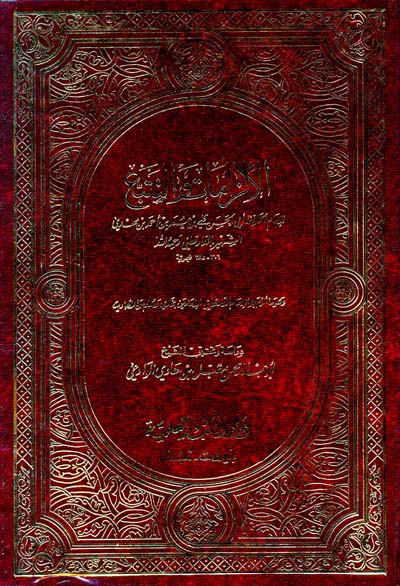 الإلزامات والتتبع
للإمام الحافظ أبي الحسن علي بن عمر بن أحمد بن مهدي
الشهير بالدارقطني رحمه الله
٣٠٦-٣٨٥ هجرية
دراسة وتحقيق الشيخ
مقبل بن هادي الوادعي
دار الكتب العلمية
بيروت - لبنان